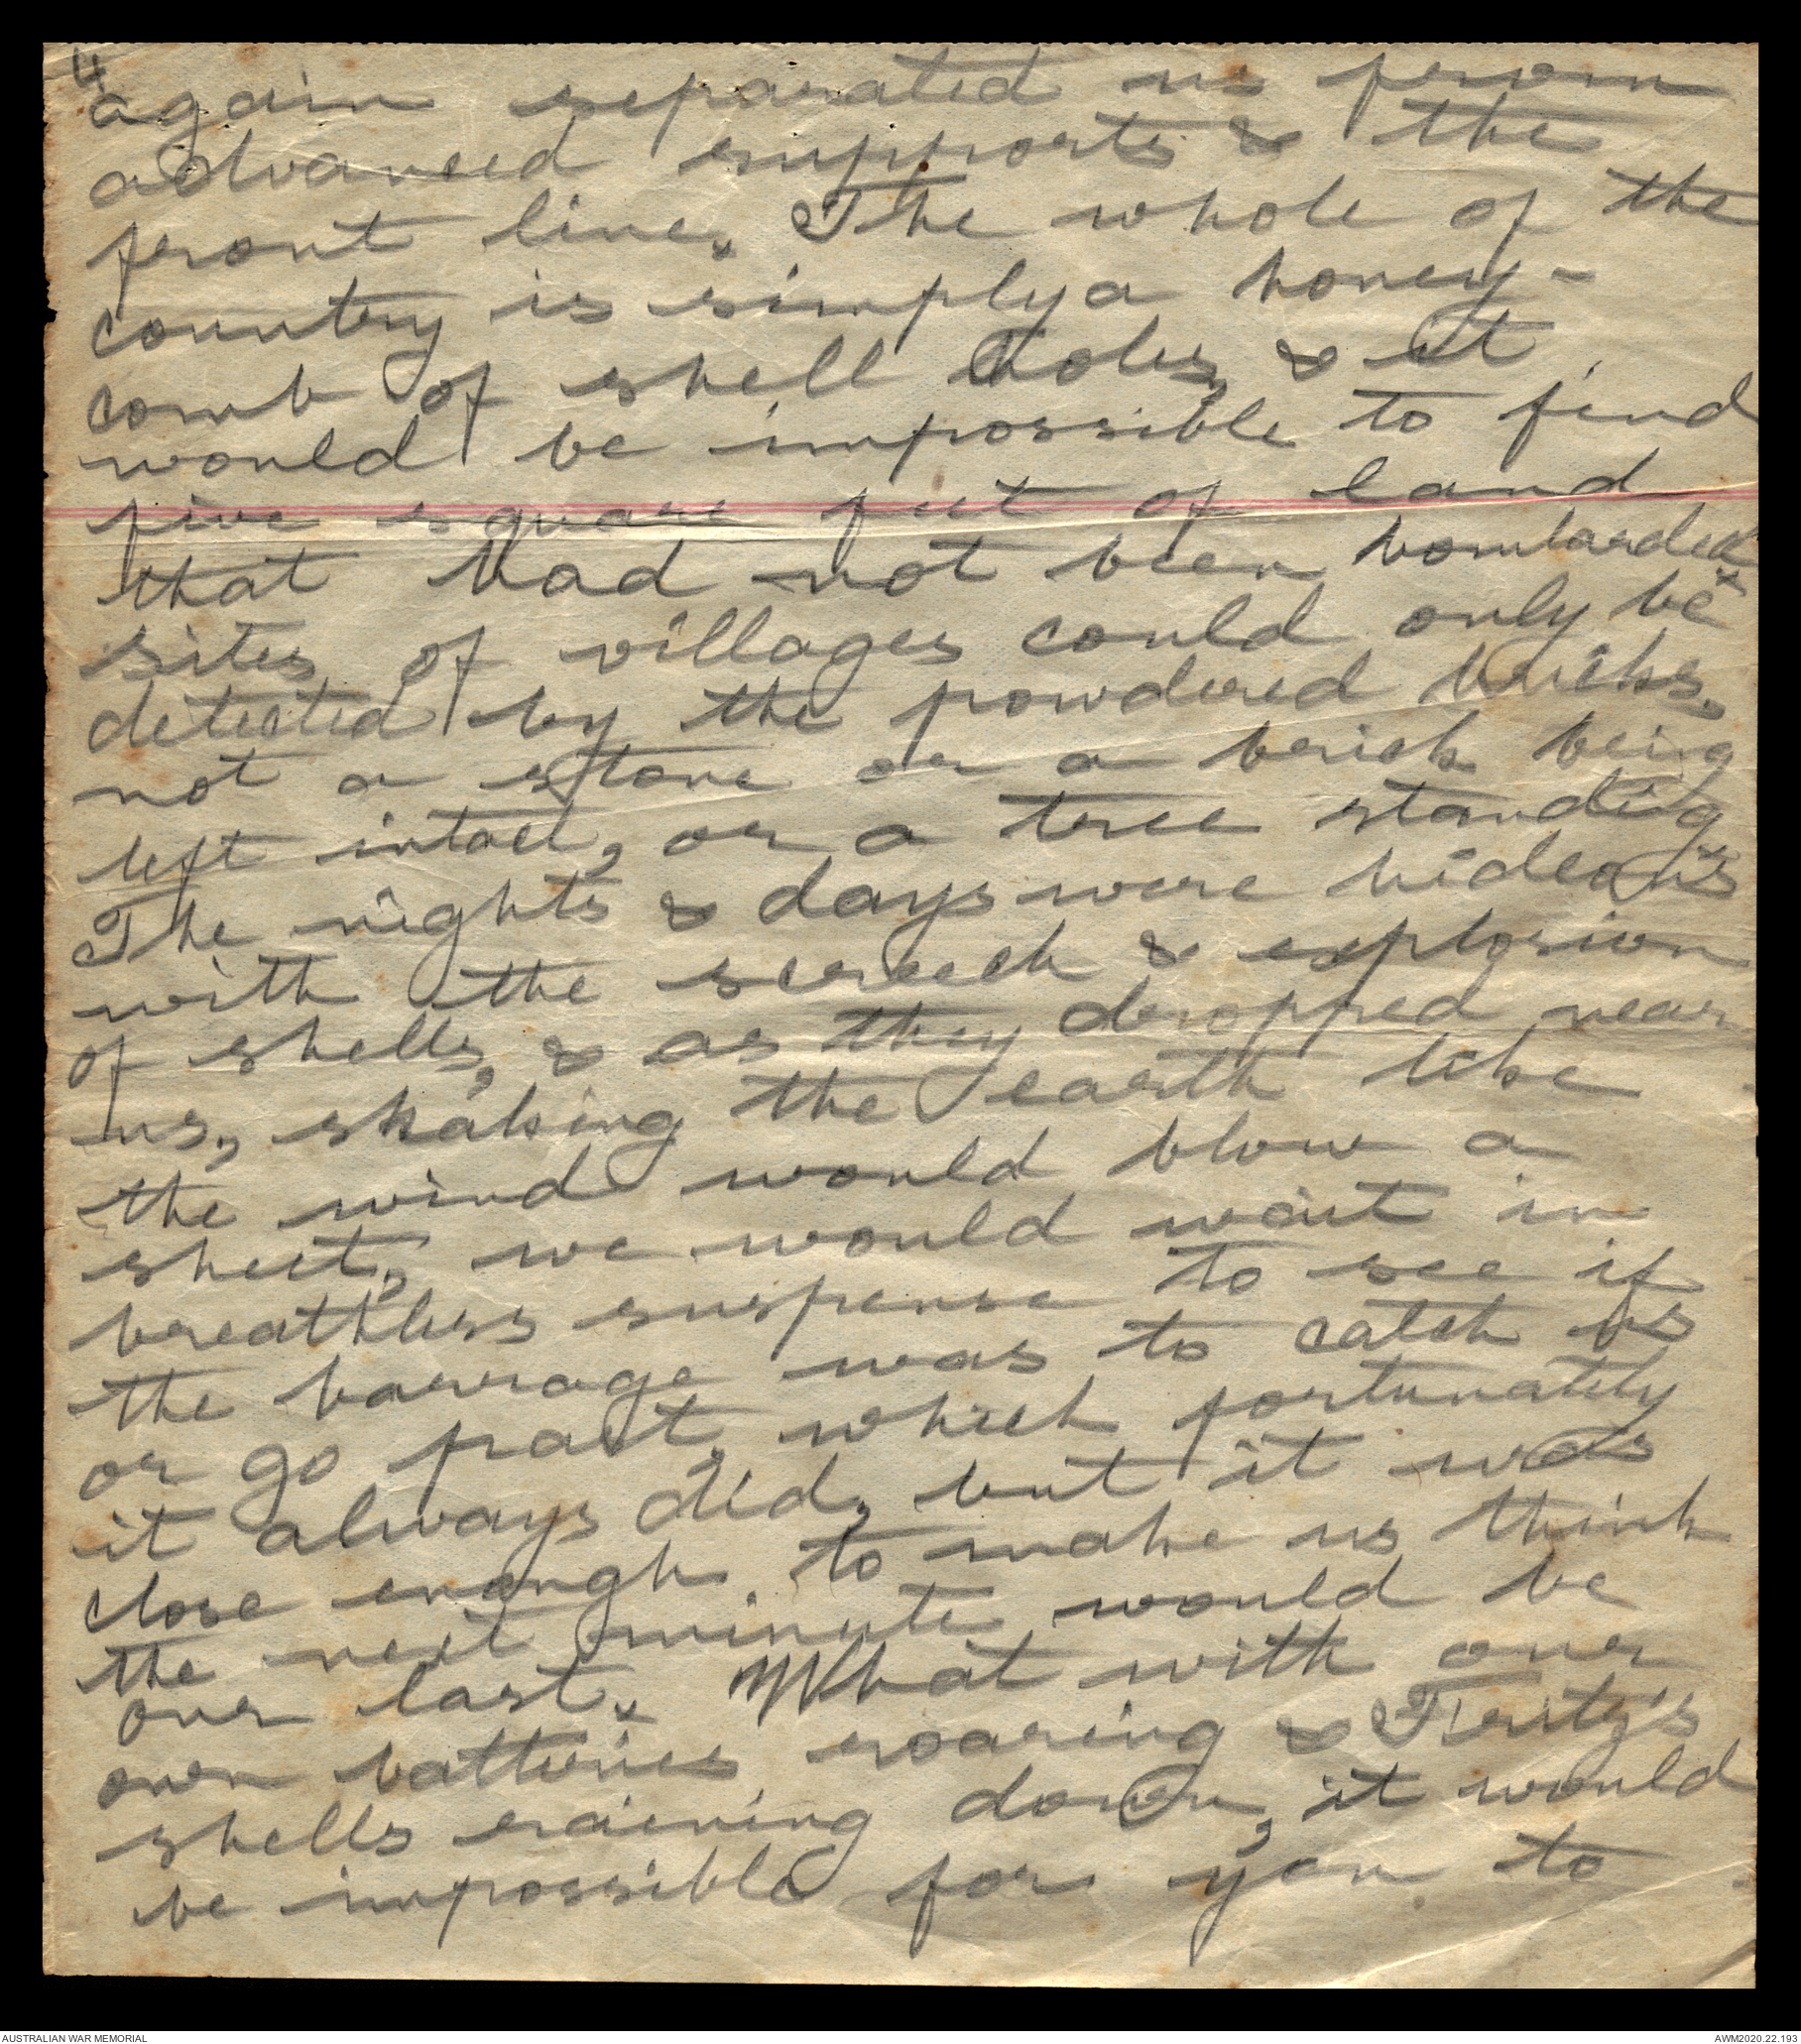 4
again separated us from
advanced supports & the
front line. The whole of the
country is simply a honey-
comb of shell holes, & it
would be impossible to find
five square feet of land
that had not been bombarded.
sites of villages could only be
detected by the powdered bricks,
not a stone or a brick being
left intact, or a tree standing.
The nights & days were hideous
with the screech & explosion
of shells, & as they dropped near
us, shaking the earth like
the wind would blow a
sheet, we would wait in
breathless suspense to see if
the barrage was to catch us
or go past, which fortunately
it always did, but it was
close enough to make us think
the next minute would be
our last. What with our
own batteries roaring & Fritz's
shells raining down, it would
be impossible for you to
AUSTRALIAN WAR MEMORIAL
AWM2020.22.193